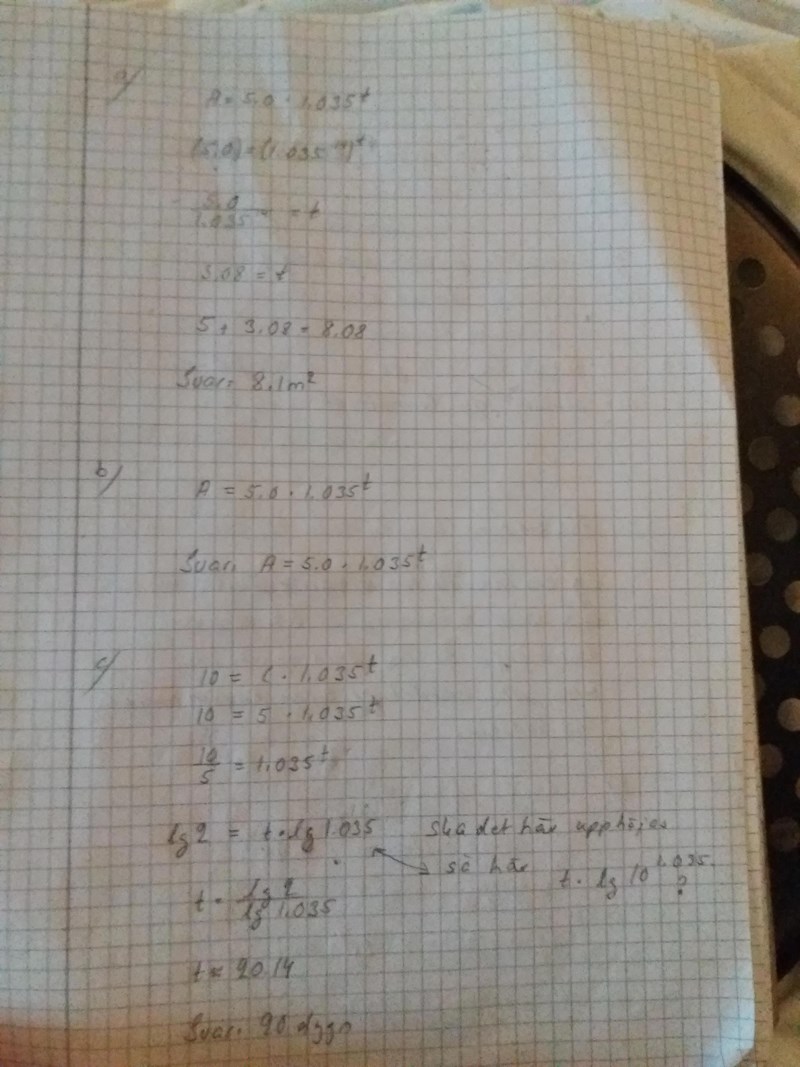 a)
A = 5.0 · 1.035^t
= t
3.08 = t
5 + 3.08 = 8.08
Svar: 8.1m²
b)
A = 5.0 · 1.035^t
Svar: A = 5.0 · 1.035^t
c)
10 = C · 1.035^t
10 = 5 · 1.035^t
10/5 = 1.035^t
lg 2 = t · lg 1.035 Ska det här upphöjas
så här t · lg 10^1.035 ?
t = lg 2 / lg 1.035
t = 20.14
Svar: 20 dygn